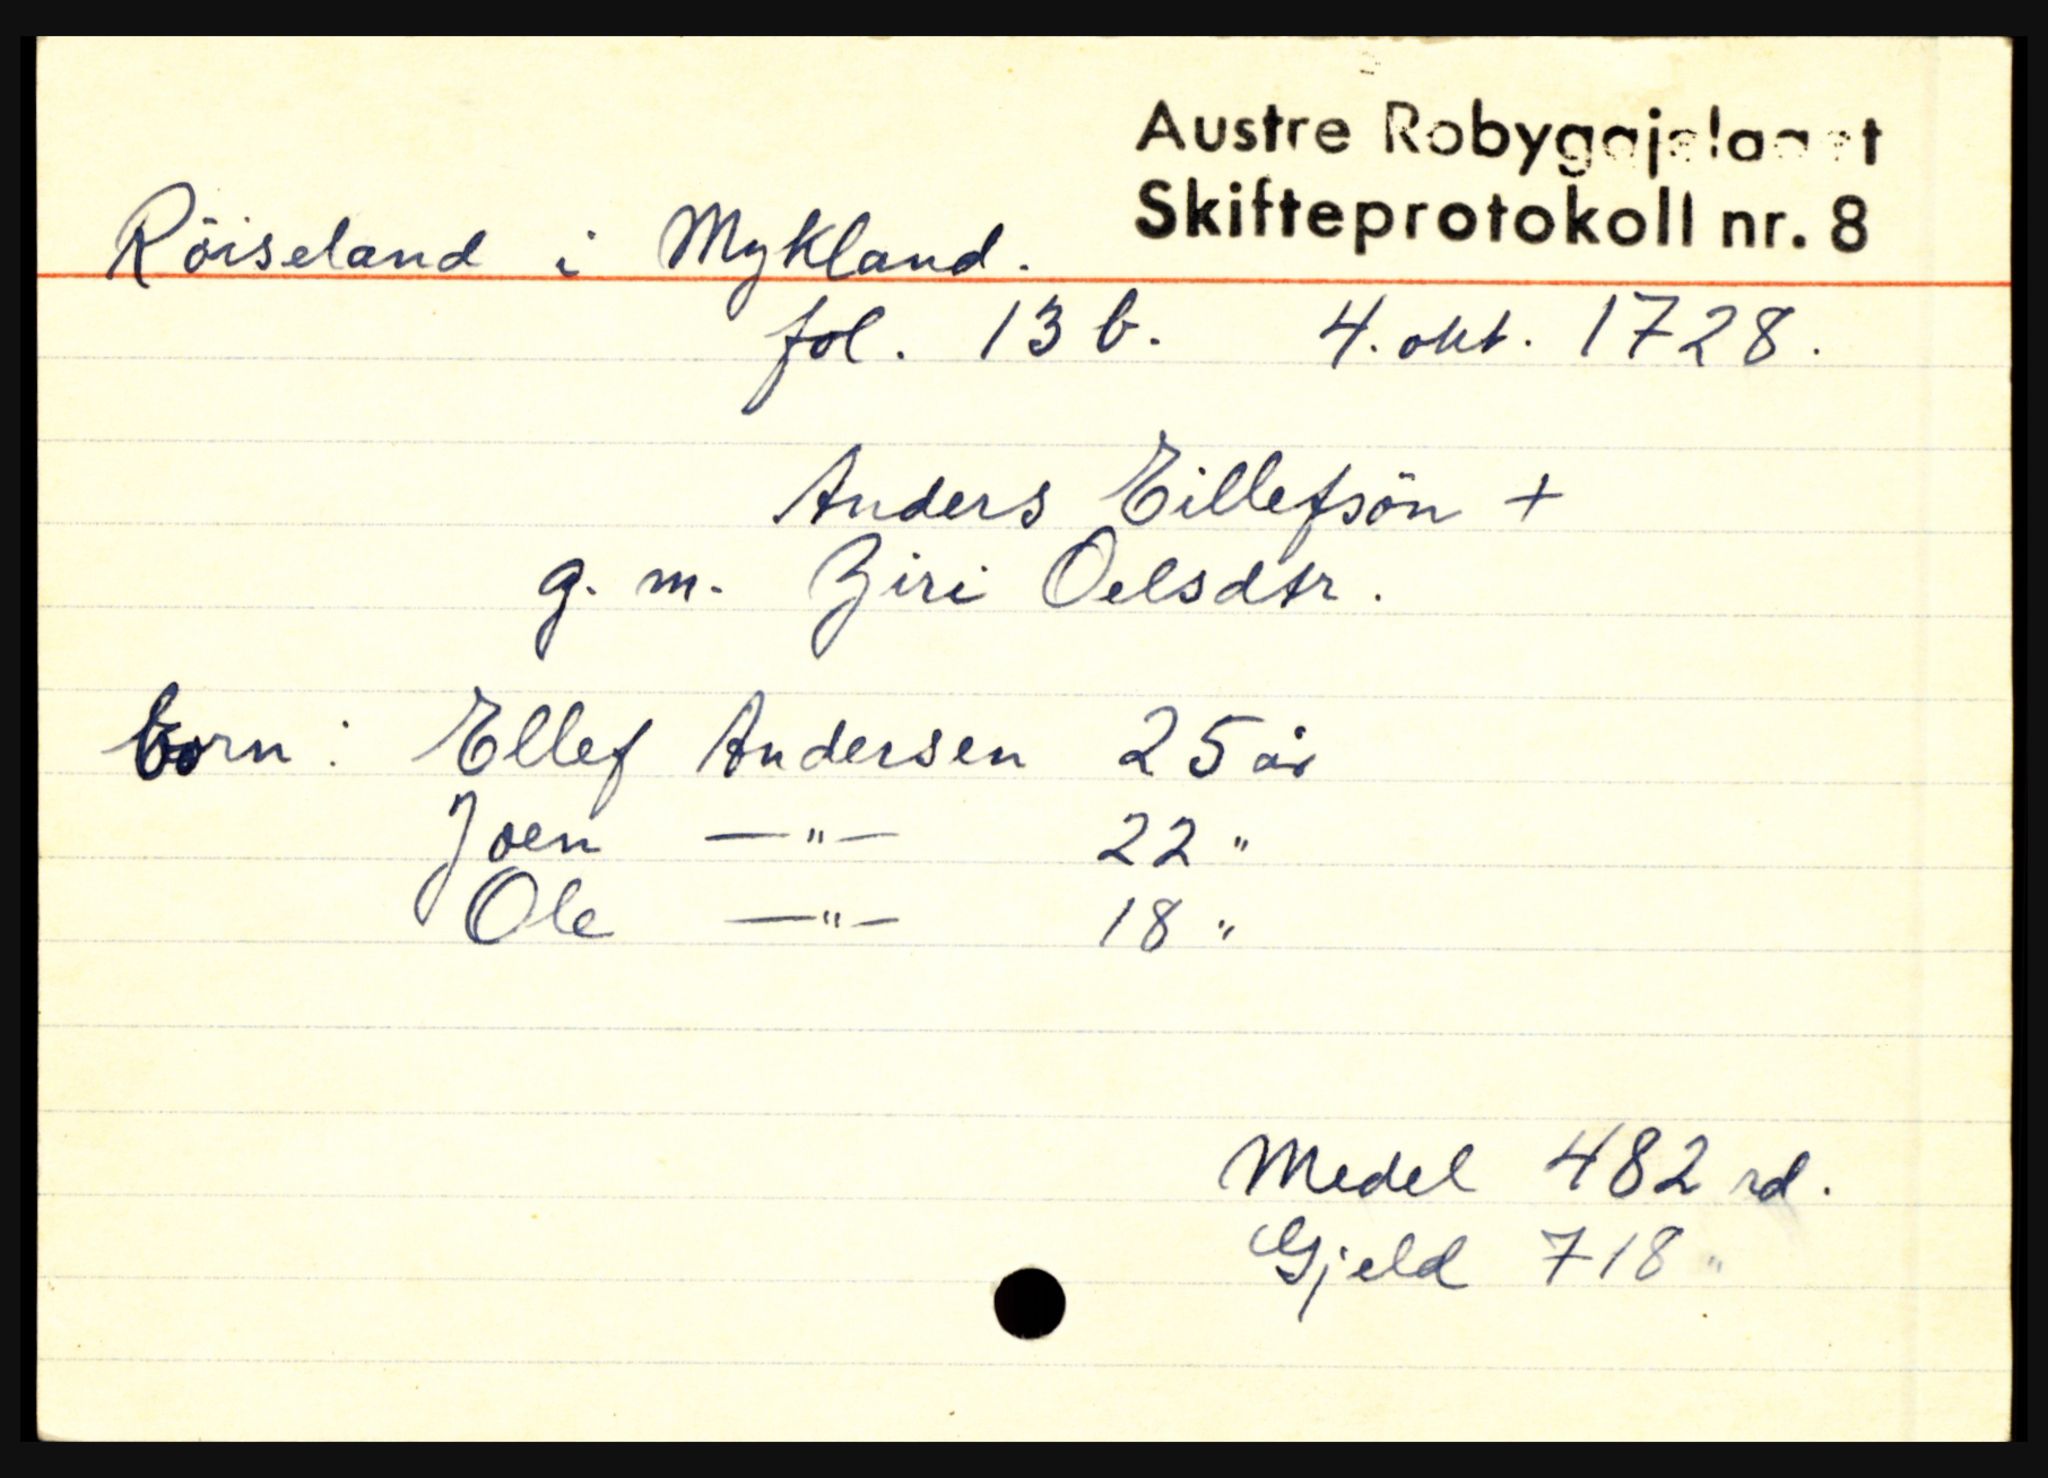 Austre Robyggjelaget
Skifteprotokoll nr. 8
Röiseland i Mykland.
fol. 13 b. 4. okt. 1728.
Anders Eillefsön +
g. m. Ziri Oelsdtr.
born : Ellef Andersen 25 år
Joen —"— 22 "
Ole —"— 18 "
Medel 482 rd.
Gjeld 718 "